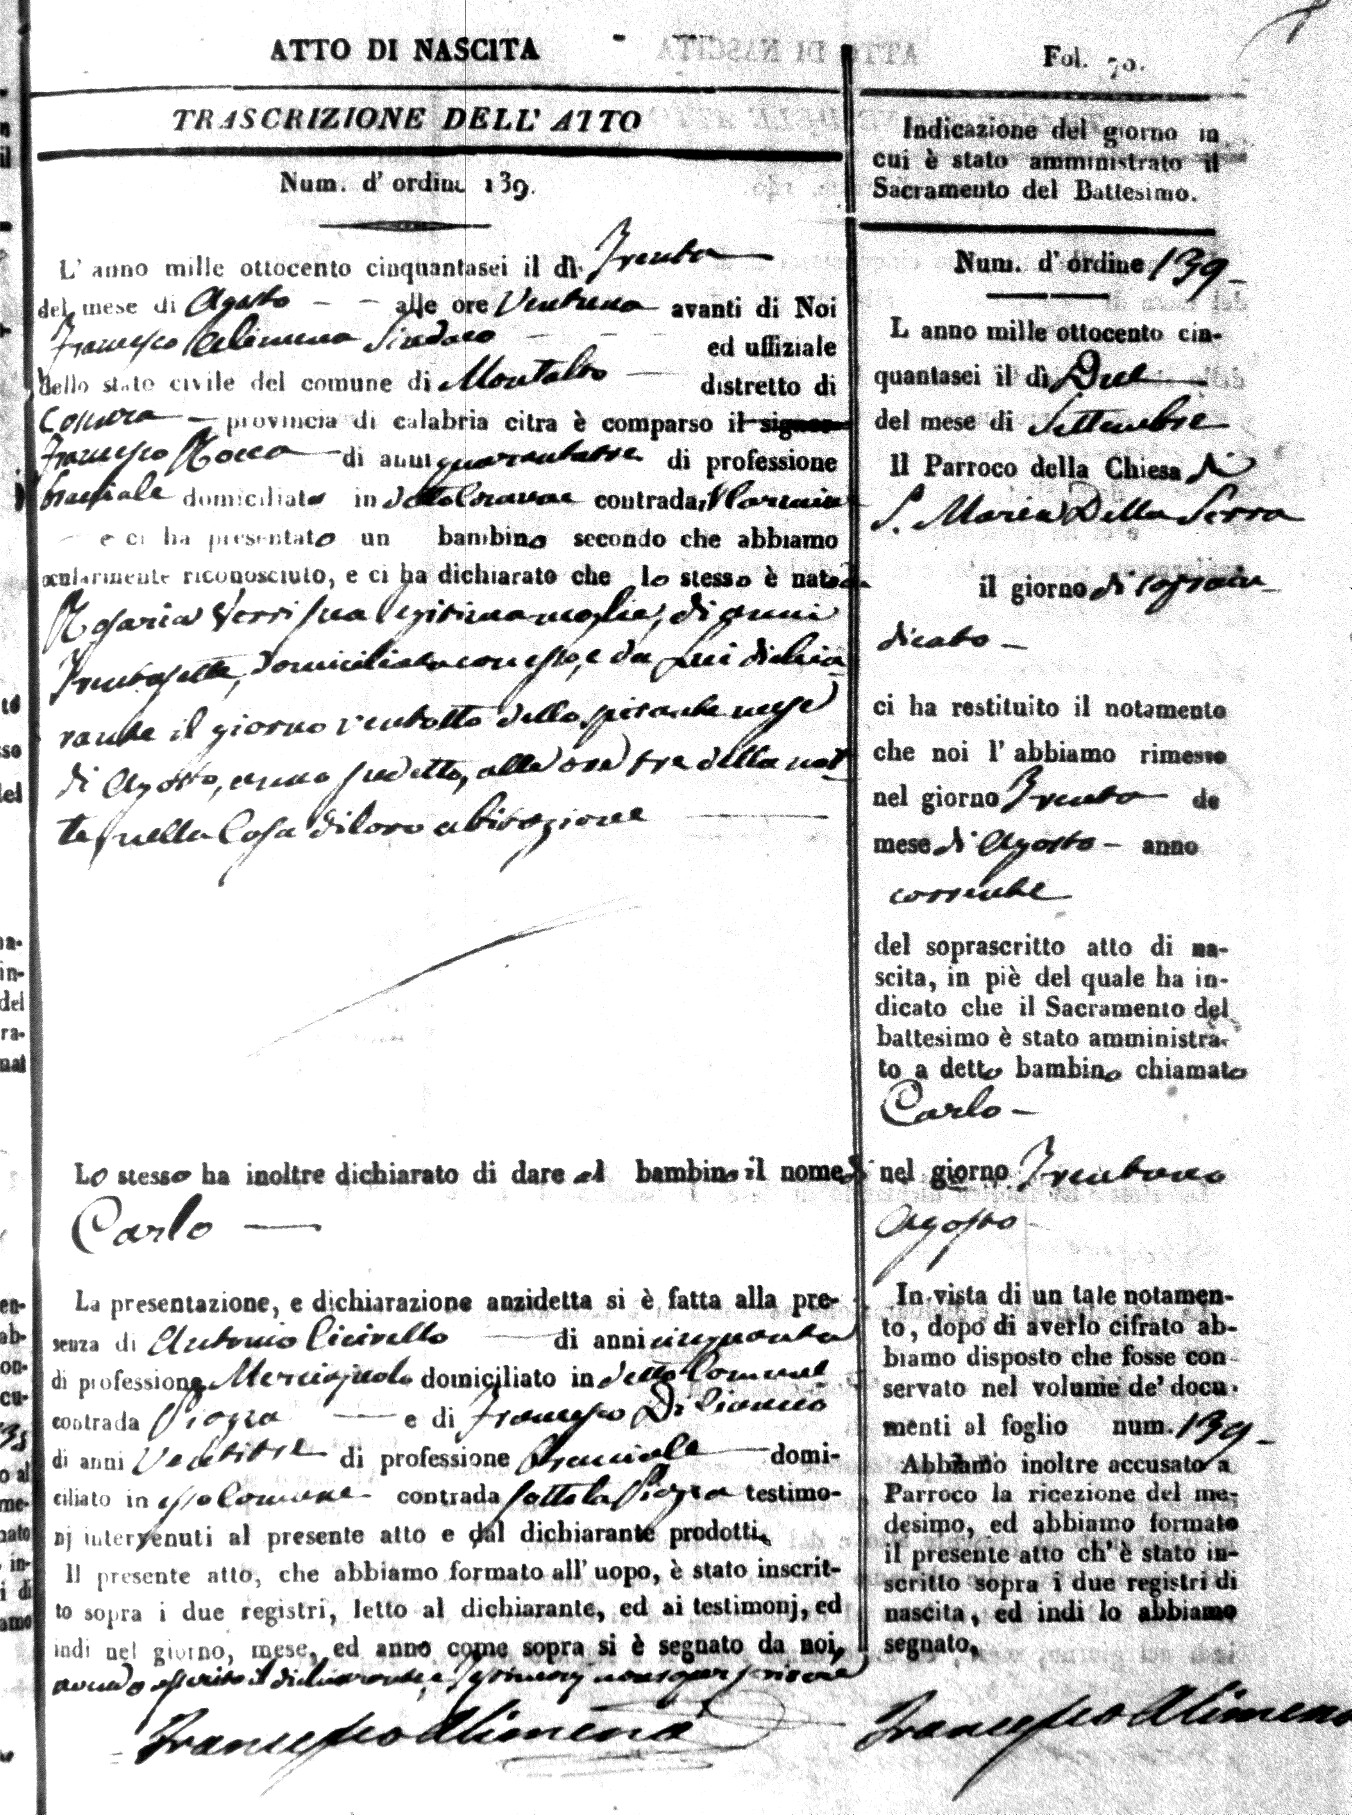 ATTO DI NASCITA
TRASCRIZIONE DELL' ATTO
Num. d' ordine 139.
L' anno mille ottocento cinquantasei il dì Trenta
del mese di Agosto alle ore Ventuna avanti di Noi
Francesco Alimena Sindaco ed uffiziale
dello stato civile del comune di Montalto distretto di
Cosenza provincia di calabria citra è comparso il signor
Francesco Rocca di anni quarantatre di professione
bracciale domiciliato in detto Comune contrada
e ci ha presentato un bambino secondo che abbiamo
ocularmente riconosciuto, e ci ha dichiarato che lo stesso è nato da
Rosaria Verri sua legittima moglie, di anni
Trentasette, domiciliata con esso, e da lui dichia
rante il giorno ventotto dello spirante mese
di Agosto, anno suddetto, alle ore tre della not
te, nella Casa di loro abitazione
Lo stesso ha inoltre dichiarato di dare al bambino il nome di
Carlo
La presentazione, e dichiarazione anzidetta si è fatta alla pre-
senza di Antonio Cicirello di anni cinquanta
di professione Merciajuolo domiciliato in detto Comune
contrada Piazza e di Francesco Di Cianni
di anni Ventitre di professione Bracciale domi-
ciliato in esso Comune contrada sotto la Piazza testimo-
nj intervenuti al presente atto e dal dichiarante prodotti.
Il presente atto, che abbiamo formato all' uopo, è stato inscrit-
to sopra i due registri, letto al dichiarante, ed ai testimonj, ed
indi nel giorno, mese, ed anno come sopra si è segnato da noi,
avendo asserito il dichiarante, e Testimonj non saper scrivere
Francesco Alimena
Fol. 70.
Indicazione del giorno in
cui è stato amministrato il
Sacramento del Battesimo.
Num. d' ordine 139
L anno mille ottocento cin-
quantasei il dì Due
del mese di Settembre
Il Parroco della Chiesa di
S. Maria Della Serra
il giorno di sopra in
dicato
ci ha restituito il notamento
che noi l' abbiamo rimesso
nel giorno Trenta de
mese di Agosto anno
corrente
del soprascritto atto di na-
scita, in piè del quale ha in-
dicato che il Sacramento del
battesimo è stato amministra-
to a detto bambino chiamato
Carlo
nel giorno Trentuno
Agosto
In vista di un tale notamen-
to, dopo di averlo cifrato ab-
biamo disposto che fosse con
servato nel volume de' docu-
menti al foglio num. 139
Abbiamo inoltre accusato a
Parroco la ricezione del me-
desimo, ed abbiamo formato
il presente atto ch' è stato in-
scritto sopra i due registri di
nascita, ed indi lo abbiamo
segnato.
Francesco Alimena